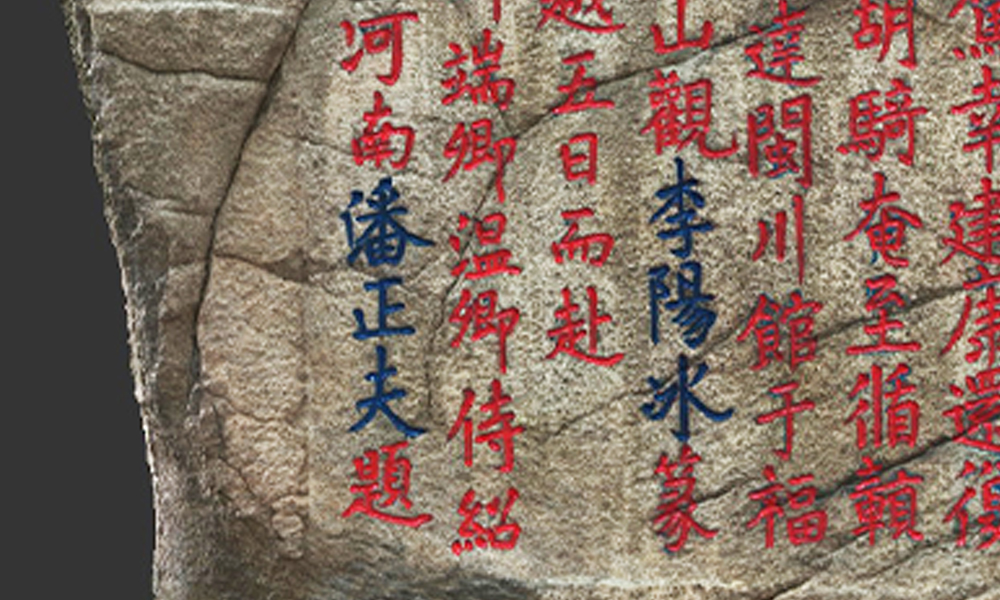 幸建康還復
胡騎奄至循贛
達閩川館于福
山觀李陽冰篆
越五日而赴
端卿温卿侍紹
河南潘正夫題